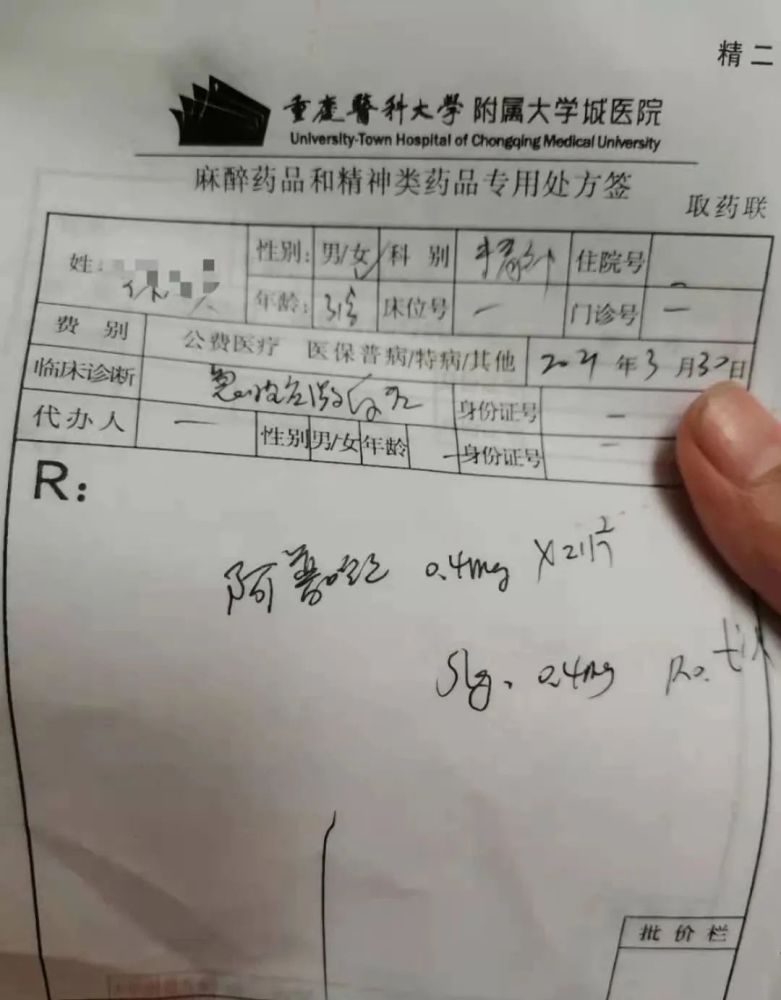 精二
重庆醫科大學 附属大学城医院
University-Town Hospital of Chongqing Medical University
麻醉药品和精神类药品专用处方签
取药联
姓 性别: 男/女 科别 住院号
年龄: 31岁 床位号 一 门诊号 一
费别 公费医疗 医保普病/特病/其他 2021年3月30日
临床诊断 身份证号 一
代办人 一 性别 男/女 年龄 身份证号
R:
阿普唑仑 0.4mg
Sig. 0.4mg
批价栏